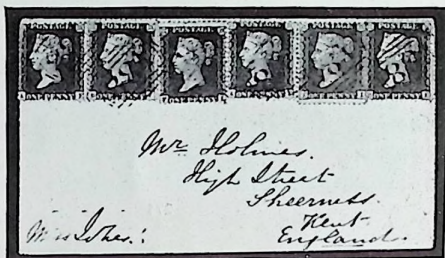 POSTAGE POSTAGE POSTAGE POSTAGE POSTAGE POSTAGE
ONE PENNY ONE PENNY ONE PENNY ONE PENNY ONE PENNY ONE PENNY
Mr. Holmes.
High Street
Sheerness.
Kent
England.